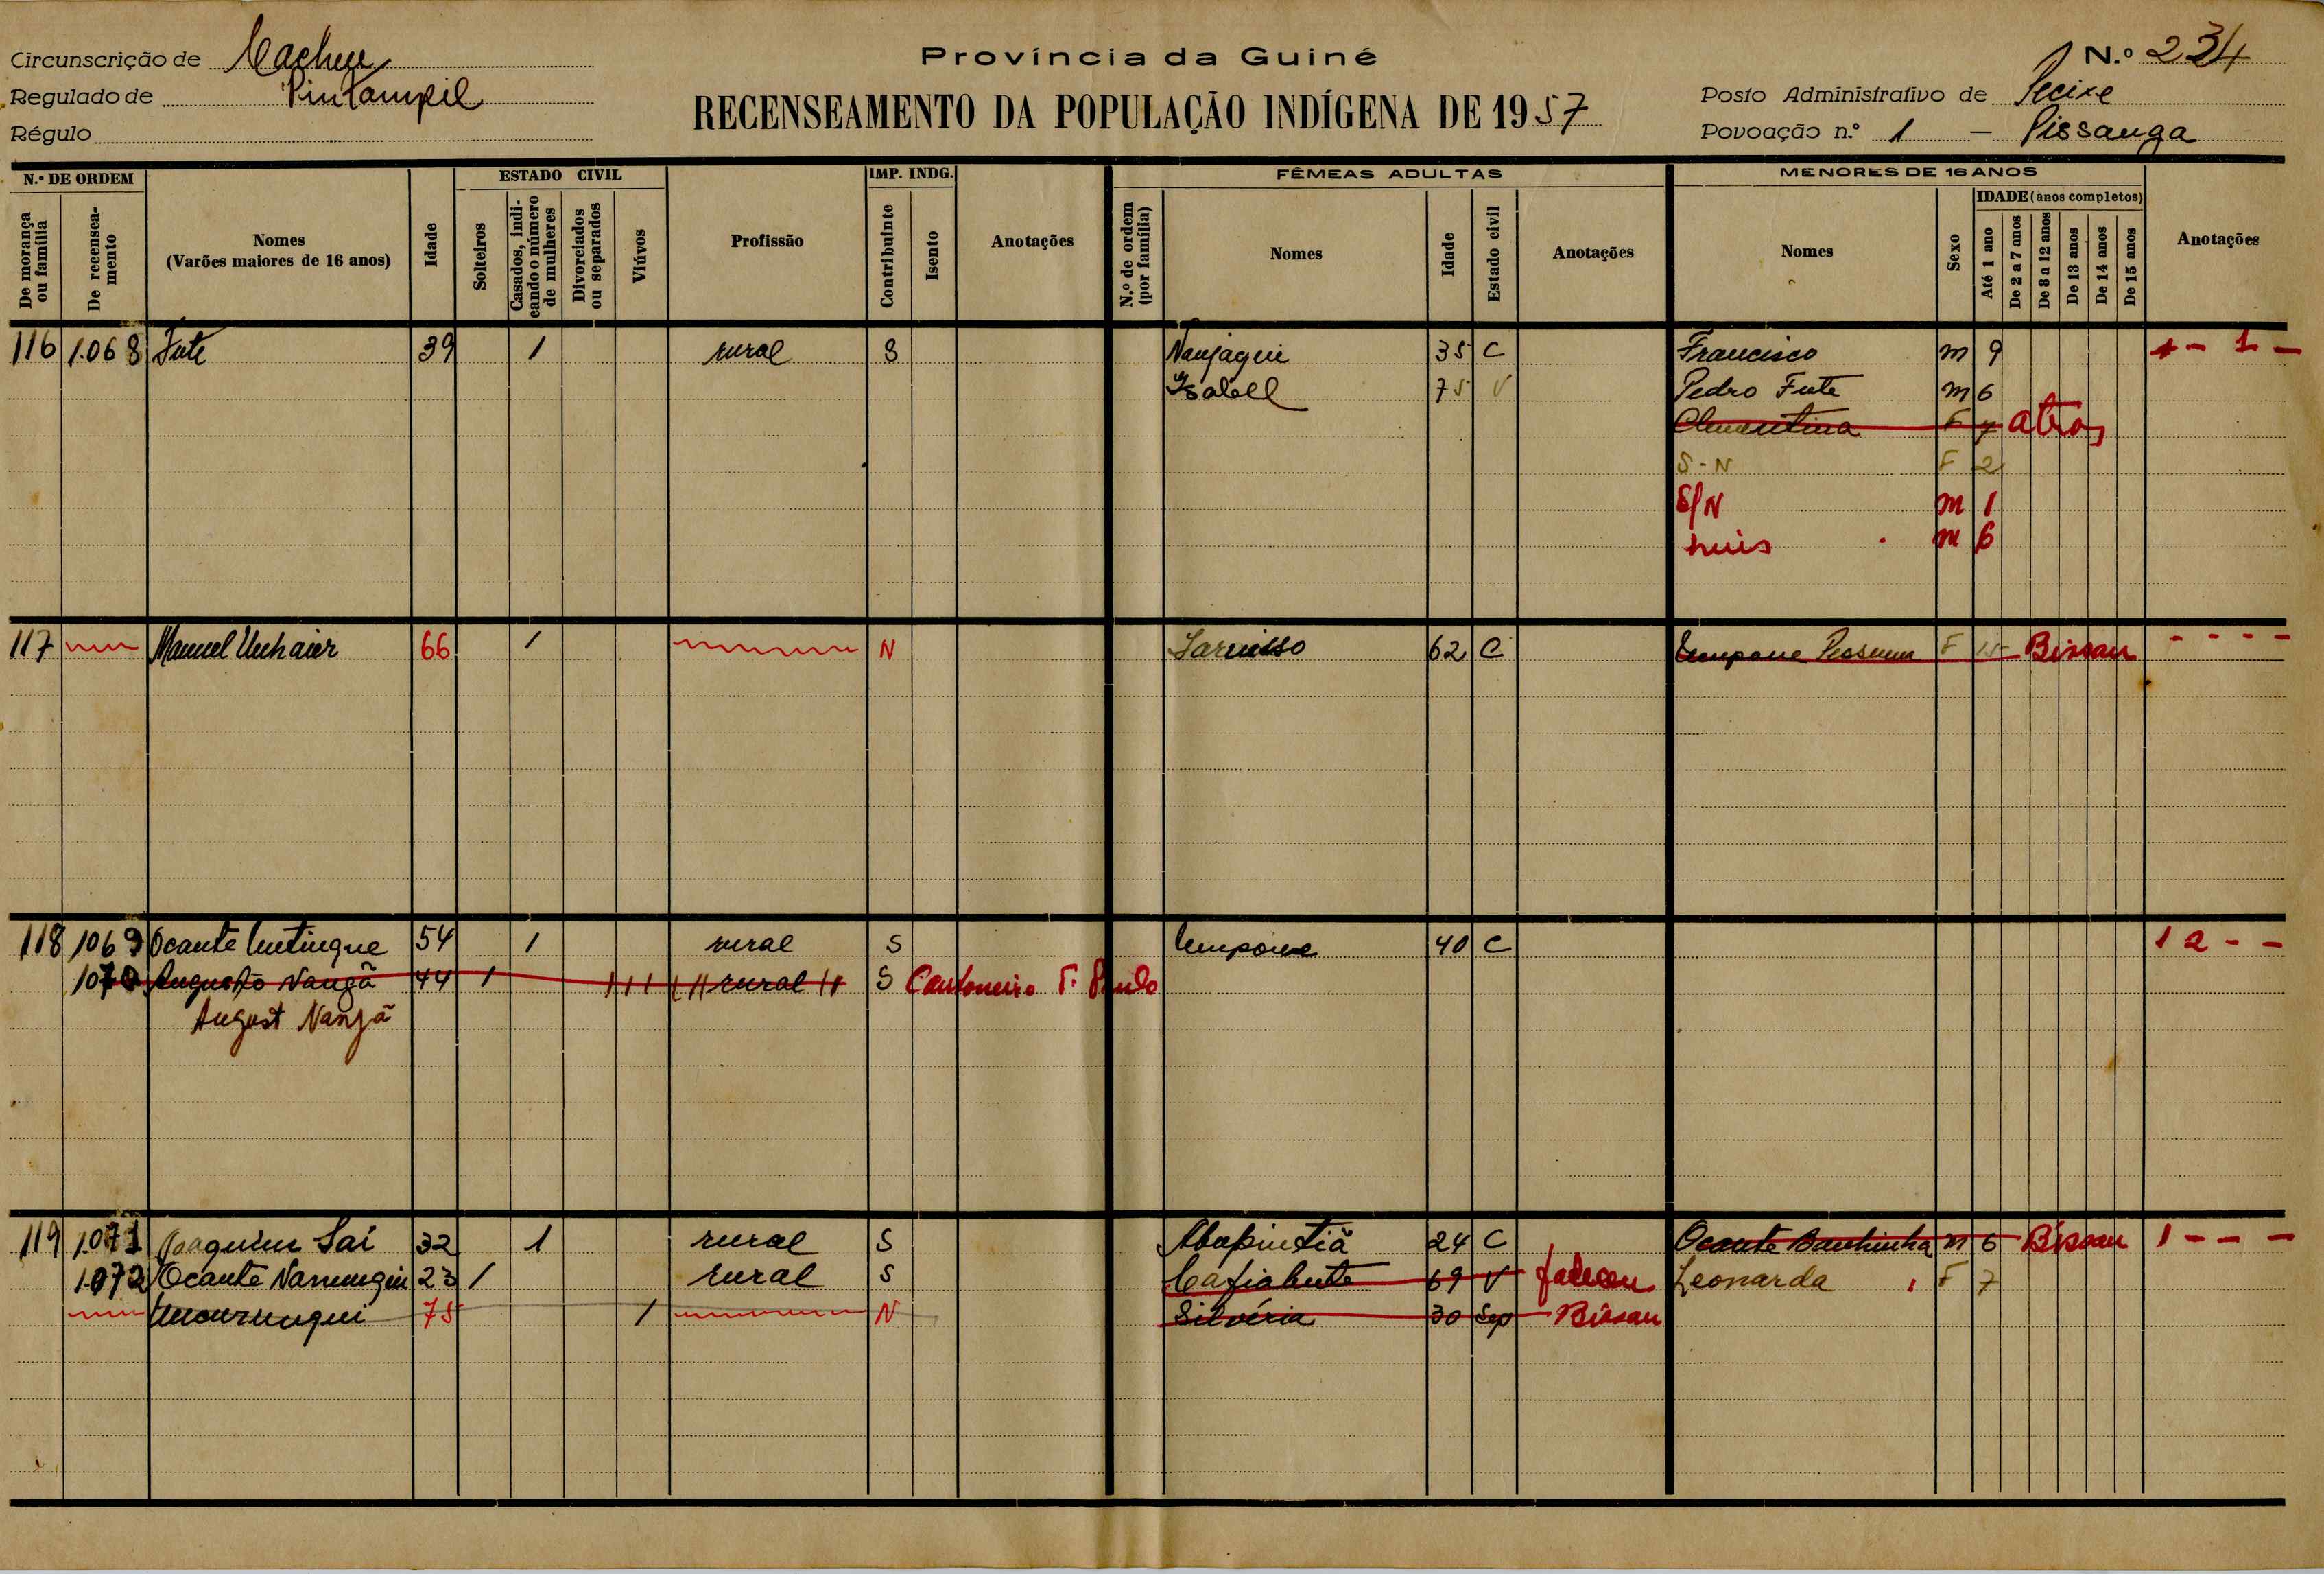 Província da Guiné
RECENSEAMENTO DA POPULAÇÃO INDÍGENA DE 1957
Circunscrição de Cacheu
Regulado de Pintampil
Régulo
N.º 234
Posto Administrativo de Pecixe
Povoação n.º 1 — Pissanga
N.º DE ORDEM
De morança ou família
De recenseamento
Nomes (Varões maiores de 16 anos)
Idade
ESTADO CIVIL
Solteiros
Casados, indicando o número de mulheres
Divorciados ou separados
Viúvos
Profissão
IMP. INDG.
Contribuinte
Isento
Anotações
FÊMEAS ADULTAS
N.º de ordem (por família)
Nomes
Idade
Estado civil
Anotações
MENORES DE 16 ANOS
Nomes
Sexo
IDADE (anos completos)
Até 1 ano
De 2 a 7 anos
De 8 a 12 anos
De 13 anos
De 14 anos
De 15 anos
Anotações
116 1.068 Fute 39 1 rural S Naujaque 35 C Francisco m 9 1 - 1 -
Isabell 75 V Pedro Fute m 6
Clementina F 7 atras
S-N F 2
S/N m 1
Luis m 6
117 Manuel 66 1 N 62 C F 15 Bissau - - - -
118 1069 Ocante 54 1 rural S 40 C 1 2 - -
1070 Augusto Nangã 44 1 rural S Cantoneiro T. Paulo
August Nanjã
119 1.071 Joaquim Sai 32 1 rural S 24 C Ocante m 6 Bissau 1 - - -
1.072 Ocante 23 1 rural S 69 V faleceu Leonarda F 7
75 1 N Silvéria 30 Sep Bissau